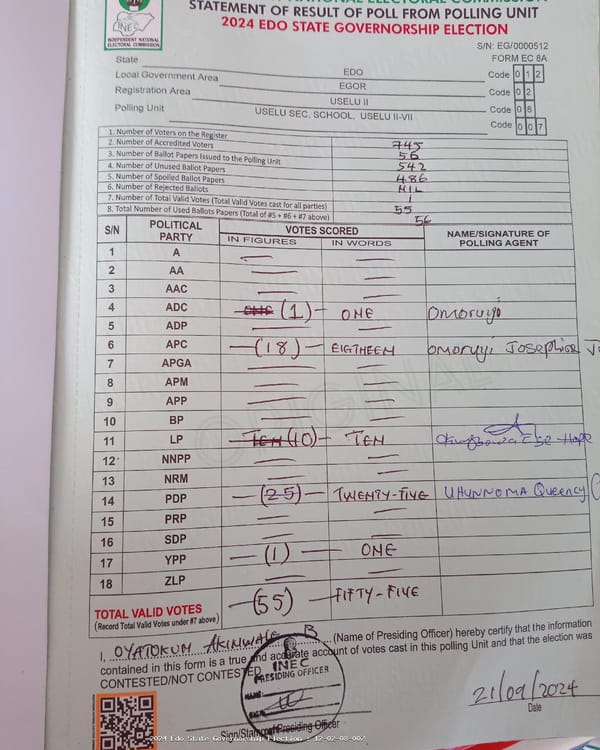 INEC
INDEPENDENT NATIONAL
ELECTORAL COMMISSION
STATEMENT OF RESULT OF POLL FROM POLLING UNIT
2024 EDO STATE GOVERNORSHIP ELECTION
S/N: EG/0000512
FORM EC 8A
State EDO Code 0 1 2
Local Government Area EGOR Code 0 2
Registration Area USELU II Code 0 8
Polling Unit USELU SEC. SCHOOL, USELU II-VII Code 0 0 7
1. Number of Voters on the Register 745
2. Number of Accredited Voters 56
3. Number of Ballot Papers Issued to the Polling Unit 542
4. Number of Unused Ballot Papers 486
5. Number of Spoiled Ballot Papers NIL
6. Number of Rejected Ballots 1
7. Number of Total Valid Votes (Total Valid Votes cast for all parties) 55
8. Total Number of Used Ballots Papers (Total of #5 + #6 + #7 above) 56
S/N POLITICAL PARTY VOTES SCORED NAME/SIGNATURE OF POLLING AGENT
IN FIGURES IN WORDS
1 A
2 AA
3 AAC
4 ADC (1) ONE Omoruyi
5 ADP
6 APC (18) EIGTHEEN Omoruyi Josephine
7 APGA
8 APM
9 APP
10 BP
11 LP TEN (10) TEN
12 NNPP
13 NRM
14 PDP (25) TWENTY-FIVE UHUNNOMA Queency
15 PRP
16 SDP
17 YPP (1) ONE
18 ZLP
TOTAL VALID VOTES (55) FIFTY-FIVE
(Record Total Valid Votes under #7 above)
I, OYATOKUM AKINWALE B (Name of Presiding Officer) hereby certify that the information
contained in this form is a true and accurate account of votes cast in this polling Unit and that the election was
CONTESTED/NOT CONTESTED
INEC
PRESIDING OFFICER
21/09/2024
Date
Sign/Stamp of Presiding Officer
2024 Edo State Governorship Election - 12-02-08-007